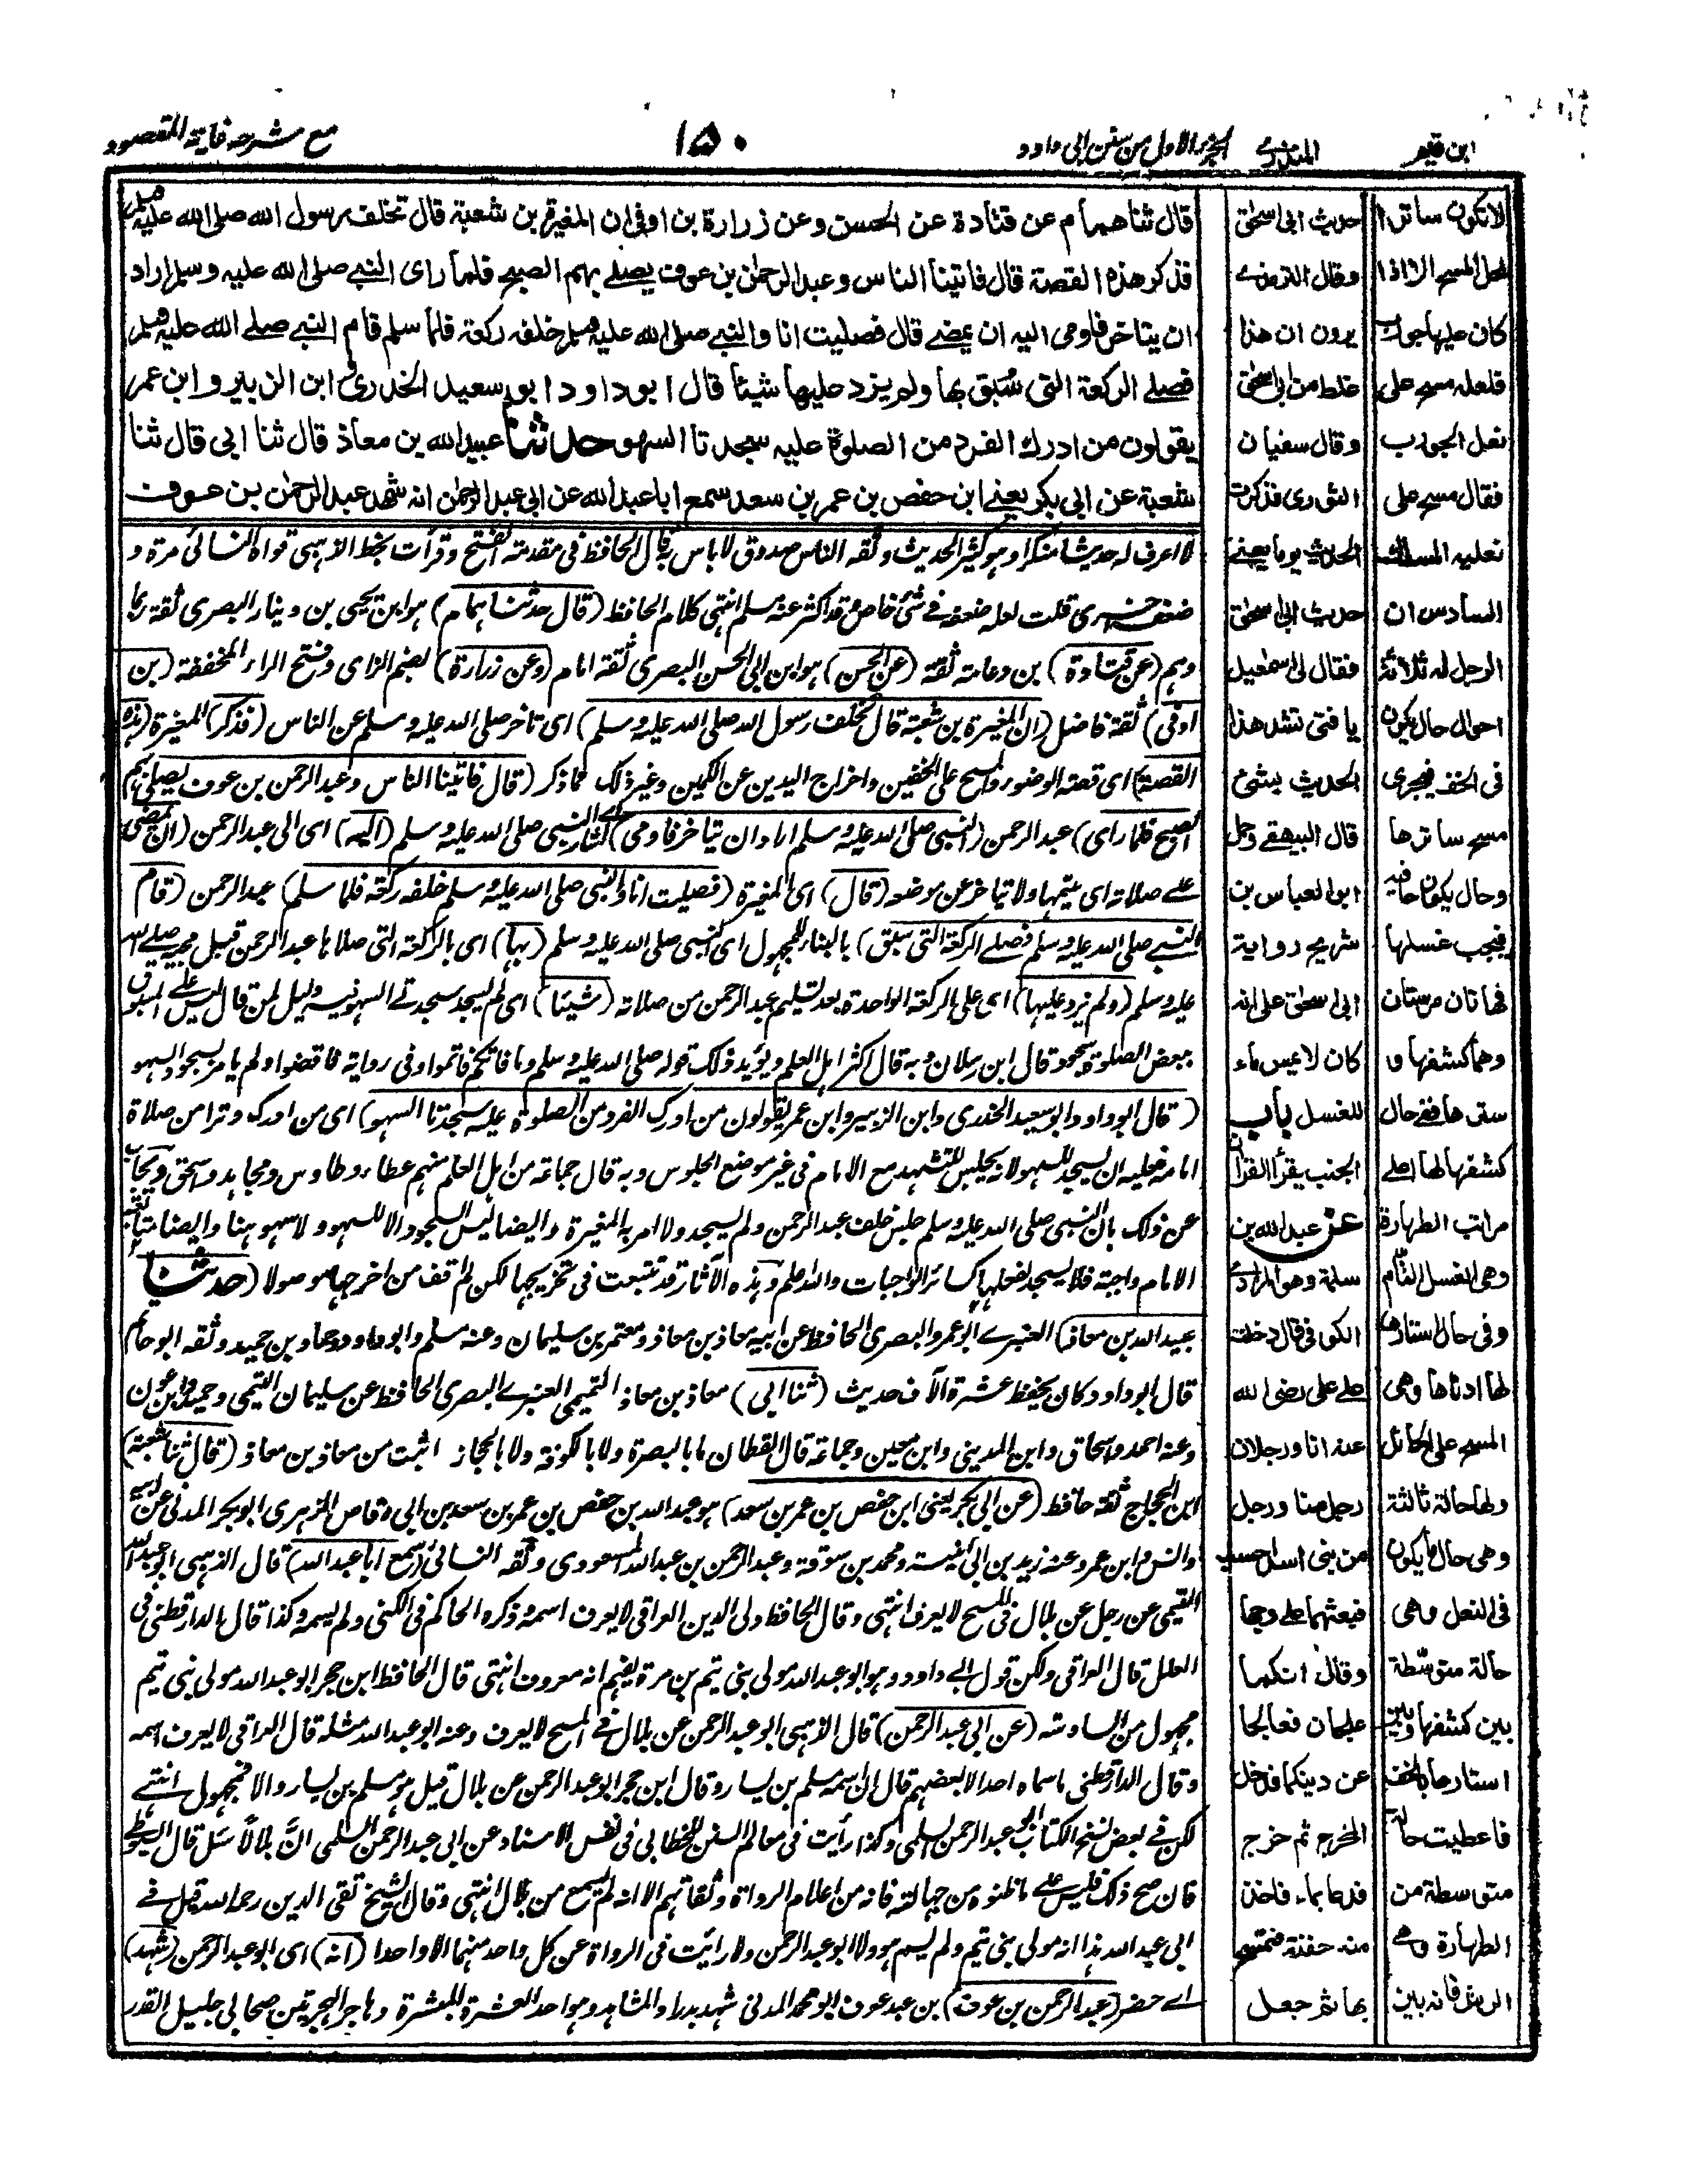 ابن قيم
المنذري
الجزء الاول من سنن ابى داود
١٥٠
مع شرحه غاية المقصود
قال ثنا همام عن قتادة عن الحسن وعن زرارة بن اوفى ان المغيرة بن شعبة قال تخلف رسول الله صلى الله عليه وسلم
فذكر هذه القصة قال فاتينا الناس وعبد الرحمن بن عوف يصلے بهم الصبح فلما راى النبے صلى الله عليه وسلم اراد
ان يتاخر فاومى اليه ان يمضے قال فصليت انا والنبے صلى الله عليه وسلم خلفه ركعة فلما سلم قام النبے صلے الله عليه وسلم
فصلے الركعة التى سُبق بها ولم يزد عليها شيئا قال ابو داود ابو سعيد الخدرى وابن الزبير وابن عمر
يقولون من ادرك الفرد من الصلوة عليه سجدتا السهو حدثنا عبيد الله بن معاذ قال ثنا ابى قال ثنا
شعبة عن ابى بكر يعنے ابن حفص بن عمر بن سعد سمع ابا عبد الله عن ابى عبد الرحمن انه شهد عبد الرحمن بن عوف
لا اعرف له حديثا منكرا وهو كثير الحديث وثقه الناس صدوق لا باس به قال الحافظ فى مقدمة الفتح وقرأت بخط الذهبى قواه النسائى مرة و
ضعفه اخرى قلت لعله ضعفه فے شئ خاص وقد اكثر عنه مسلم انتهى كلام الحافظ (قال حدثنا همام) هو ابن يحيى بن دينار البصرى ثقة ربما
وهم (عن قتادة) بن دعامة ثقة (عن الحسن) هو ابن ابى الحسن البصرى ثقة امام (وعن زرارة) بضم الزاى وفتح الراء المخففة (بن
اوفى) ثقة فاضل (ان المغيرة بن شعبة قال تخلف رسول الله صلى الله عليه وسلم) اى تاخر صلى الله عليه وسلم عن الناس (فذكر) المغيرة (هذه
القصة) اى قصة الوضوء والمسح على الخفين واخراج اليدين عن الكمين وغير ذلك مما ذكر (قال فاتينا الناس وعبد الرحمن بن عوف يصلى بهم
الصبح فلما راى) عبد الرحمن (النبى صلى الله عليه وسلم اراد ان يتاخر فاومى) اى اشار النبى صلى الله عليه وسلم (اليه) اى الى عبد الرحمن (ان يمضى)
علے صلاته اى يتمها ولا يتاخر عن موضعه (قال) اى المغيرة (فصليت انا والنبى صلى الله عليه وسلم خلفه ركعة فلما سلم) عبد الرحمن (قام
النبے صلى الله عليه وسلم فصلے الركعة التى سبق) بالبناء للمجهول اى النبى صلى الله عليه وسلم (بها) اى بالركعة التى صلاها عبد الرحمن قبل مجيئه صلے الله
عليه وسلم (ولم يزد عليها) اى على الركعة الواحدة بعد تسليم عبد الرحمن من صلاته (شيئا) اى لم يسجد سجدتے السهو فيه دليل لمن قال ليس علے المسبوق
ببعض الصلوة سجود قال ابن رسلان وبه قال اكثر اهل العلم ويؤيد ذلك قوله صلى الله عليه وسلم وما فاتكم فاتموا وفى رواية فاقضوا ولم يامر بسجود السهو
(قال ابو داود ابو سعيد الخدرى وابن الزبير وابن عمر يقولون من ادرك الفرد من الصلوة عليه سجدتا السهو) اى من ادرك وترا من صلاة
امامه فعليه ان يسجد للسهو لانه يجلس للتشهد مع الامام فى غير موضع الجلوس وبه قال جماعة من اهل العلم منهم عطاء وطاوس ومجاهد واسحق ويجاب
عن ذلك بان النبى صلى الله عليه وسلم جلس خلف عبد الرحمن ولم يسجد ولا امر به المغيرة وايضا ليس السجود الا للسهو ولا سهو هنا وايضا متابعة
الامام واجبة فلا يسجد لفعلها كسائر الواجبات والله اعلم وهذه الآثار قد تتبعت فى تخريجها لكن لم اقف من اخرجها موصولا (حدثنا
عبيد الله بن معاذ) العنبرے ابو عمرو البصرى الحافظ عن ابيه معاذ بن معاذ ومعتمر بن سليمان وعنه مسلم وابو داود وحماد بن حميد وثقه ابو حاتم
قال ابو داود كان يحفظ عشرة آلاف حديث (ثنا ابى) معاذ بن معاذ التميمى العنبرے البصرى الحافظ عن سليمان التيمى وحميد وابن عون
وعنه احمد واسحاق وابن المدينى وابن معين وجماعة قال القطان ما بالبصرة ولا بالكوفة ولا بالحجاز اثبت من معاذ بن معاذ (قال ثنا شعبة)
ابن الحجاج ثقة حافظ (عن ابى بكر يعنى ابن حفص بن عمر بن سعد) هو عبد الله بن حفص بن عمر بن سعد بن ابى وقاص الزهرى ابو بكر المدنى عن ابيه
وانس وابن عمر وعنه زيد بن ابى انيسة ومحمد بن سوقة وعبد الرحمن بن عبد الله المسعودى وثقه النسائى (سمع ابا عبد الله) قال الذهبى ابو عبد الله
التيمى عن رجل عن بلال فى المسح لا يعرف انتهى وقال الحافظ ولى الدين العراقى لا يعرف اسمه وذكره الحاكم فى الكنى ولم يسمه وكذا قال الدارقطنى فى
العلل قال العراقى ولكن قول ابے داود وهو ابو عبد الله مولى بنى تيم بن مرة يفهم انه معروف انتهى قال الحافظ ابن حجر ابو عبد الله مولى بنى تيم
مجهول من السادسة (عن ابى عبد الرحمن) قال الذهبى ابو عبد الرحمن عن بلال فے المسح لا يعرف وعنه ابو عبد الله مثله قال العراقى لا يعرف اسمه
وقال الدارقطنى ما سماه احد الا بعضهم قال ان اسمه مسلم بن يسار وقال ابن حجر ابو عبد الرحمن عن بلال قيل هو مسلم بن يسار والا فمجهول انتهے
لكن فے بعض نسخ الكتاب ابو عبد الرحمن السلمى وكذا رأيت فى معالم السنن للخطابى فى نفس الاسناد عن ابى عبد الرحمن السلمى انَّ بلالاً سئل قال السيوطے
فان صح ذلك فليس علے ما ظنوه من جهالته فانه من اعلام الرواة وثقاتهم الا انه لم يسمع من بلال انتهى وقال الشيخ تقى الدين رحمه الله قيل فے
ابى عبد الله هذا انه مولى بنى تيم ولم يسم هو ولا ابو عبد الرحمن ولا رأيت فى الرواة عن كل واحد منهما الا واحدا (انه) اى ابو عبد الرحمن (شهد)
اے حضر (عبد الرحمن بن عوف) بن عبد عوف ابو محمد المدنى شهد بدرا والمشاهد وهو احد العشرة المبشرة وهاجر الهجرتين صحابى جليل القدر
حديث ابى اسحق
وقال الترمذے
يرون ان هذا
غلط من ابى اسحق
وقال سفيان
الثورى فذكرت
الحديث يوما يعنے
حديث ابى اسحق
فقال لى اسمعيل
يا فتى تشد هذا
الحديث بشئ
قال البيهقے وحمل
ابو العباس بن
شريح رواية
ابى اسحق على انه
كان لا يمس ماء
للغسل باب
الجنب يقرأ القران
عن عبد الله بن
سلمة وهو المرادے
الكوفى قال دخلت
على على رضى الله
عنه انا ورجلان
رجل منا ورجل
من بنى اسد احسب
فبعثهما على وجها
وقال انكما
علجان فعالجا
عن دينكما فدخل
المخرج ثم خرج
فدعا بماء فاخذ
منه حفنة فتمسح
بها ثم جعل
لا تكون ساترا
لمحل المسح الا اذا
كان عليها جورب
فلعله مسح على
نعل الجورب
فقال مسح على
نعليه المسلك
السادس ان
الرجل له ثلاثة
احوال حال يكون
فى الخف فيجزى
مسح ساترها
وحال يكون حافيه
فيجب غسلها
فهاتان مرتبتان
وهما كشفها و
سترها ففے حال
كشفها لها اعلے
مراتب الطهارة
وهى الغسل التام
وفى حال استتارها
لها ادناها وهى
المسح على الحائل
ولها حالة ثالثة
وهى حال ما يكون
فى النعل وهى
حالة متوسطة
بين كشفها وبين
استتارها بالخف
فاعطيت حالة
متوسطة من
الطهارة وهے
الرش فانه بين